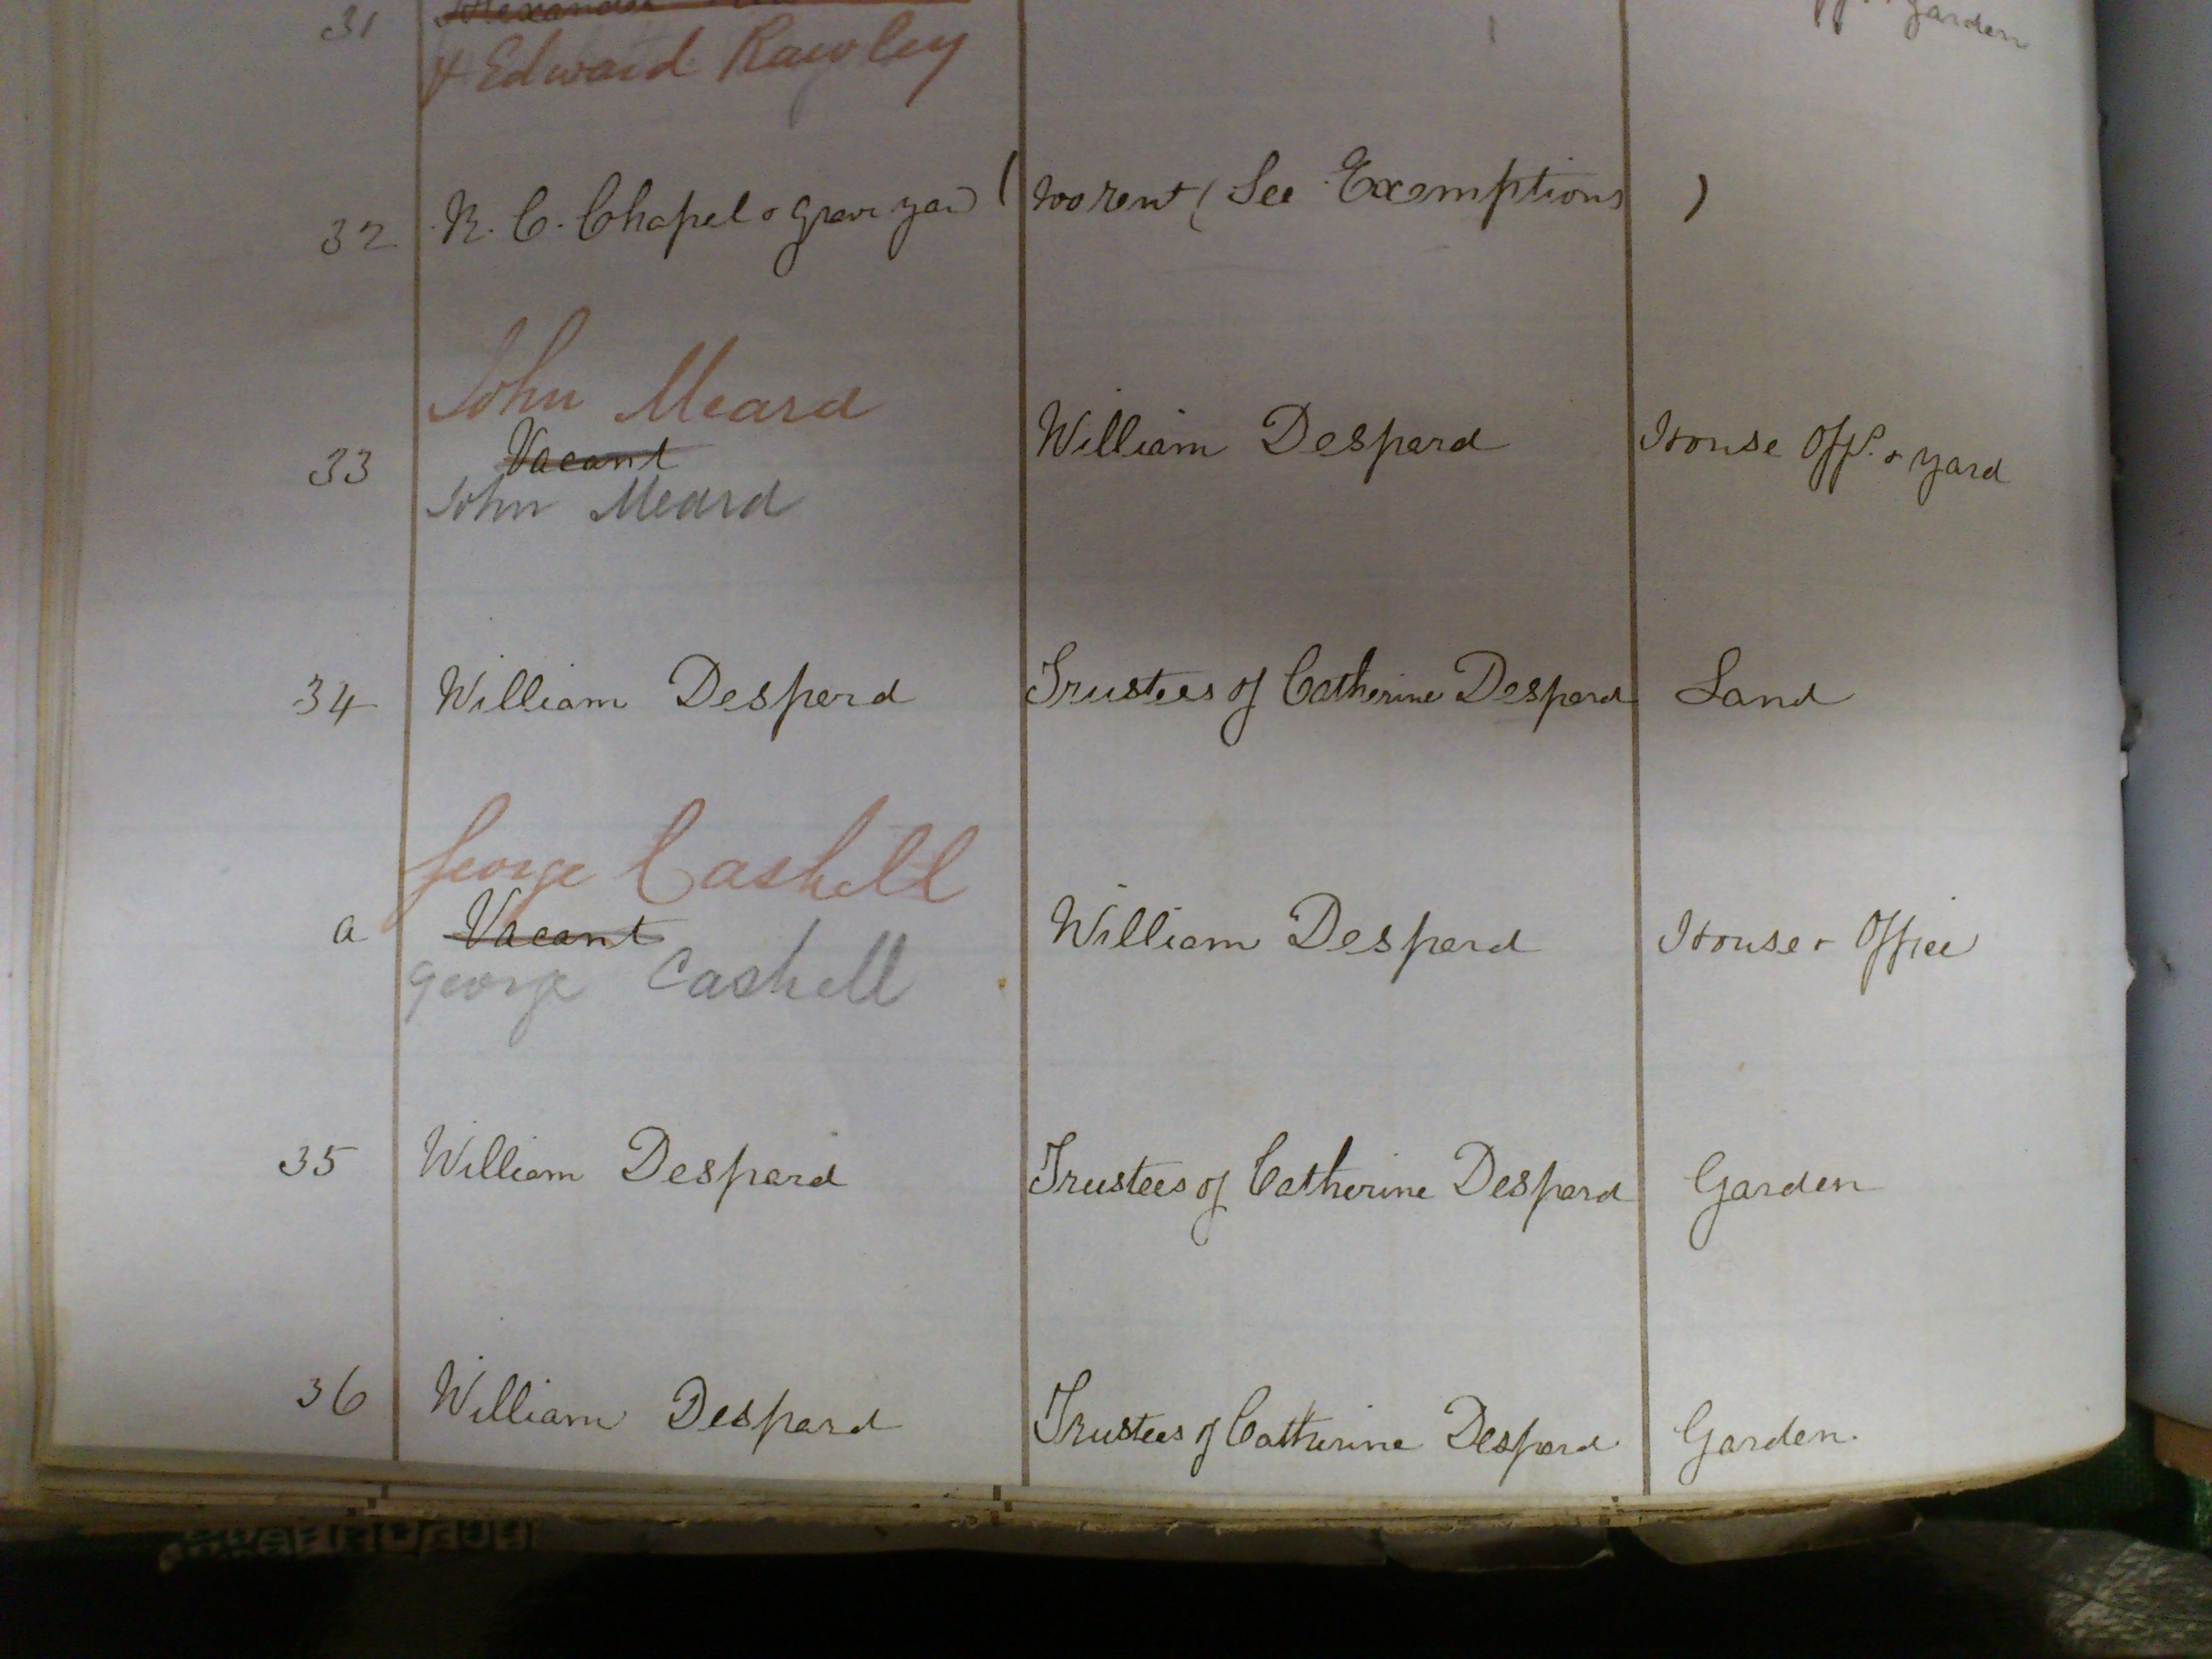 31 Alexander
& Edward Rawley
garden
32 R. C. Chapel & grave yard ( No rent ( See Exemptions )
John Meard
33 Vacant William Despard House Offs. & yard
John Meard
34 William Despard Trustees of Catherine Despard Land
George Cashell
a Vacant William Despard House & Office
George Cashell
35 William Despard Trustees of Catherine Despard Garden
36 William Despard Trustees of Catherine Despard Garden.